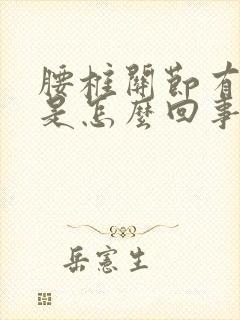 腰柱關節有
是怎麼回事
岳憲生